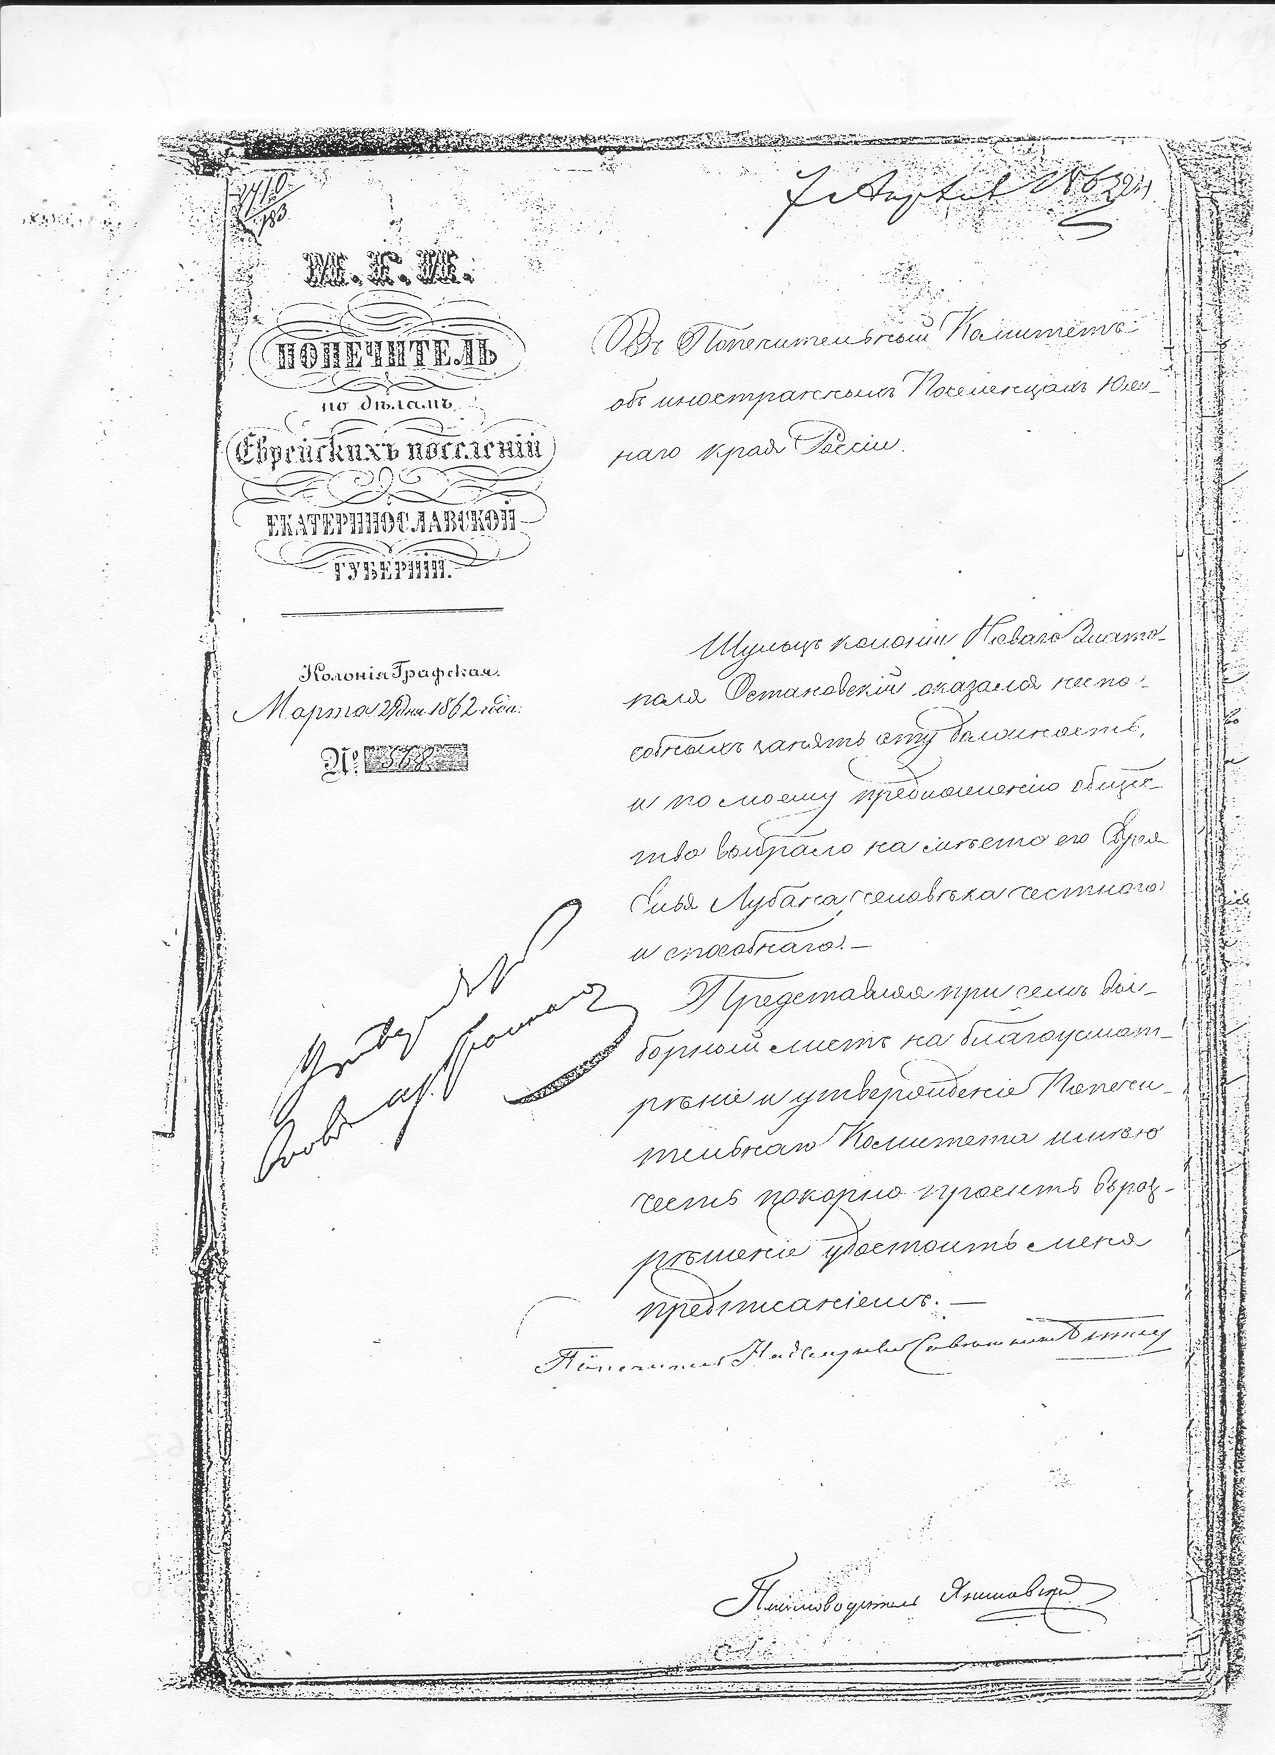 2710
183
7 Апреля 1862
М.Г.И.
ПОПЕЧИТЕЛЬ
по дѣламъ
Еврейскихъ поселеній
ЕКАТЕРИНОСЛАВСКОЙ
ГУБЕРНІИ.
Колонія Графская.
Марта 29 дня 1862 года.
№ 568
Въ Попечительный Комитетъ
объ иностранныхъ Поселенцахъ Юж-
наго края Россіи.
Шульцъ колоніи Новаго Злато-
поля Остановскій оказался неспо-
собнымъ занять эту должность,
и по моему предложенію общес-
тво выбрало на мѣсто его Еврея
Лубана, человѣка честнаго
и способнаго. —
Представляя при семъ вы-
борный листъ на благоусмот-
рѣніе и утвержденіе Попечи-
тельнаго Комитета имѣю
честь покорно просить въ раз-
рѣшеніе удостоить меня
предписаніемъ. —
Попечитель Надворный Совѣтникъ
Письмоводитель Яншевскій